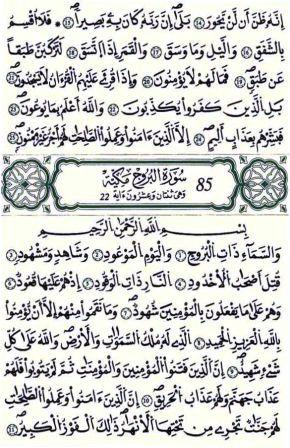 إِنَّهُ ظَنَّ أَن لَّن يَحُورَ ١٤ بَلَىٰ إِنَّ رَبَّهُ كَانَ بِهِ بَصِيرًا ١٥ فَلَا أُقْسِمُ
بِالشَّفَقِ ١٦ وَالَّيْلِ وَمَا وَسَقَ ١٧ وَالْقَمَرِ إِذَا اتَّسَقَ ١٨ لَتَرْكَبُنَّ طَبَقًا
عَن طَبَقٍ ١٩ فَمَا لَهُمْ لَا يُؤْمِنُونَ ٢٠ وَإِذَا قُرِئَ عَلَيْهِمُ الْقُرْءَانُ لَا يَسْجُدُونَ ٢١
بَلِ الَّذِينَ كَفَرُوا يُكَذِّبُونَ ٢٢ وَاللَّهُ أَعْلَمُ بِمَا يُوعُونَ ٢٣
فَبَشِّرْهُم بِعَذَابٍ أَلِيمٍ ٢٤ إِلَّا الَّذِينَ ءَامَنُوا وَعَمِلُوا الصَّالِحَاتِ لَهُمْ أَجْرٌ غَيْرُ مَمْنُونٍ ٢٥
85 سُورَةُ الْبُرُوجِ مَكِّيَّة
وَهِيَ ثِنْتَانِ وَعِشْرُونَ ءَايَة 22
بِسْمِ اللَّهِ الرَّحْمَٰنِ الرَّحِيمِ
وَالسَّمَاءِ ذَاتِ الْبُرُوجِ ١ وَالْيَوْمِ الْمَوْعُودِ ٢ وَشَاهِدٍ وَمَشْهُودٍ ٣
قُتِلَ أَصْحَابُ الْأُخْدُودِ ٤ النَّارِ ذَاتِ الْوَقُودِ ٥ إِذْ هُمْ عَلَيْهَا قُعُودٌ ٦
وَهُمْ عَلَىٰ مَا يَفْعَلُونَ بِالْمُؤْمِنِينَ شُهُودٌ ٧ وَمَا نَقَمُوا مِنْهُمْ إِلَّا أَن يُؤْمِنُوا
بِاللَّهِ الْعَزِيزِ الْحَمِيدِ ٨ الَّذِي لَهُ مُلْكُ السَّمَاوَاتِ وَالْأَرْضِ وَاللَّهُ عَلَىٰ كُلِّ
شَيْءٍ شَهِيدٌ ٩ إِنَّ الَّذِينَ فَتَنُوا الْمُؤْمِنِينَ وَالْمُؤْمِنَاتِ ثُمَّ لَمْ يَتُوبُوا فَلَهُمْ
عَذَابُ جَهَنَّمَ وَلَهُمْ عَذَابُ الْحَرِيقِ ١٠ إِنَّ الَّذِينَ ءَامَنُوا وَعَمِلُوا الصَّالِحَاتِ
لَهُمْ جَنَّاتٌ تَجْرِي مِن تَحْتِهَا الْأَنْهَارُ ذَٰلِكَ الْفَوْزُ الْكَبِيرُ ١١